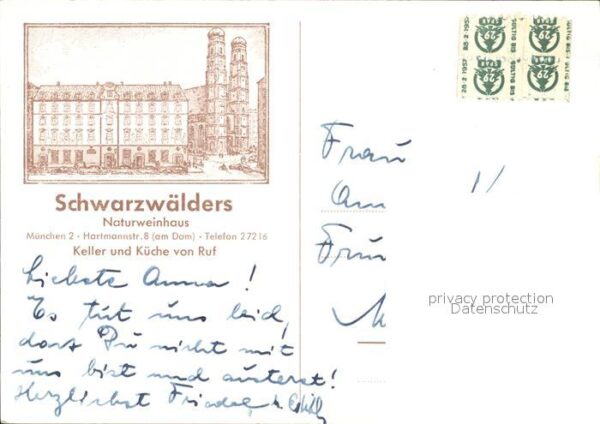 Schwarzwälders
Naturweinhaus
München 2 - Hartmannstr. 8 (am Dom) - Telefon 27216
Keller und Küche von Ruf
Liebste Anna!
Es tut uns leid,
dass Du nicht mit
uns bist und austerst!
Herzlichst Friedel
28·2·1957
GÜLTIG BIS
29
Frau
An
privacy protection
Datenschutz